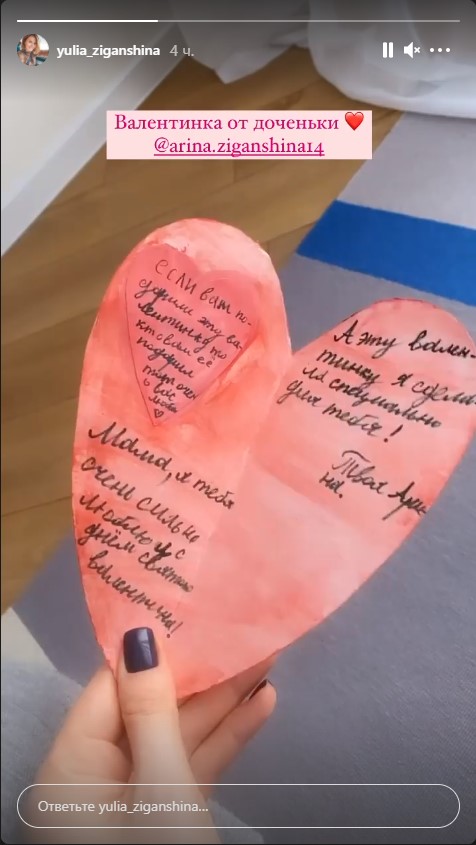 yulia_ziganshina 4 ч.
Валентинка от доченьки ❤️
@arina.ziganshina14
если вам по-
дарили эту ва-
лентинку то
кто вам её
подарил
тот очен
вас
любит
Мама, я тебя
очень сильно
люблю и с
днём святого
валентина!
А эту вален-
тинку я сдела-
ла специально
для тебя!
Твоя Ари-
на.
Ответьте yulia_ziganshina...